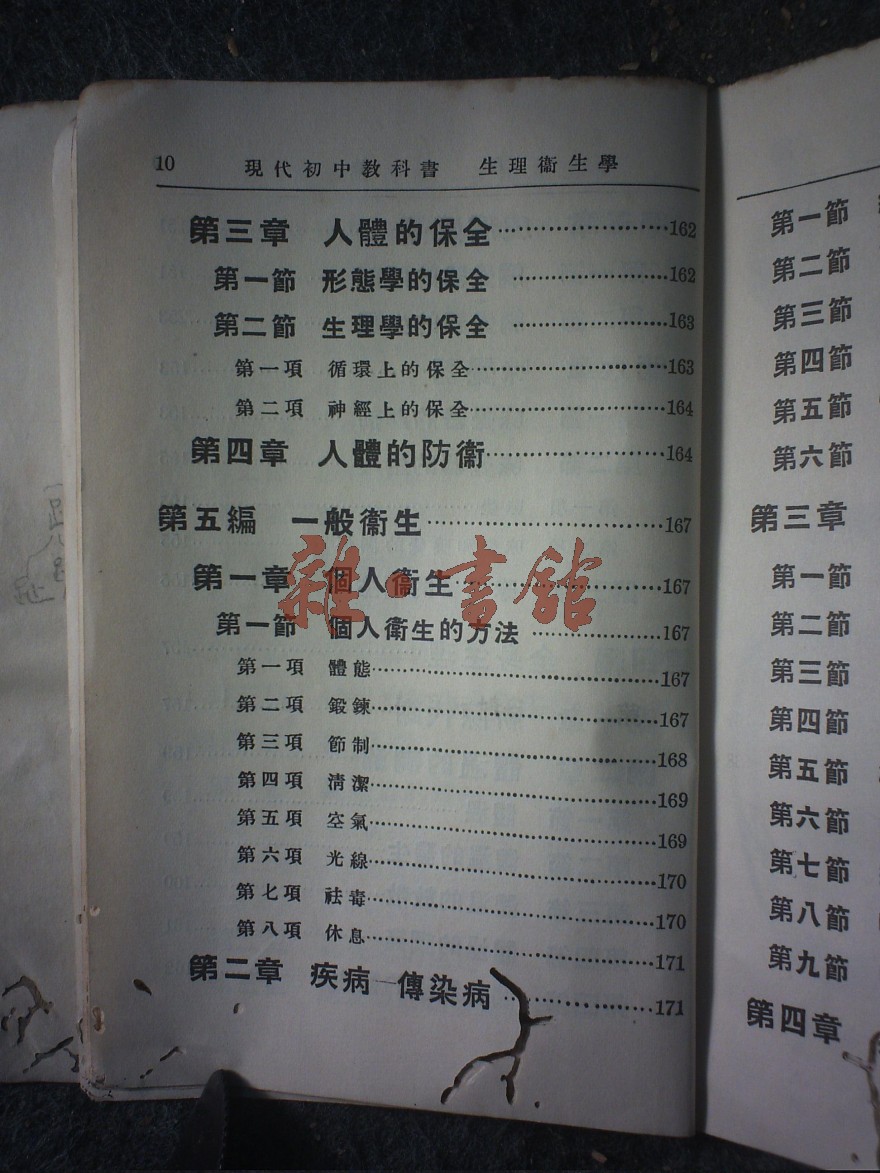 10 現代初中教科書 生理衞生學
第三章 人體的保全………………162
第一節 形態學的保全………………162
第二節 生理學的保全………………163
第一項 循環上的保全………………163
第二項 神經上的保全………………164
第四章 人體的防衞………………164
第五編 一般衞生………………167
第一章 個人衞生………………167
第一節 個人衞生的方法………………167
第一項 體態………………167
第二項 鍛鍊………………167
第三項 節制………………168
第四項 淸潔………………169
第五項 空氣………………169
第六項 光線………………170
第七項 祛毒………………170
第八項 休息………………171
第二章 疾病—傳染病………………171
雜·書館
第一節
第二節
第三節
第四節
第五節
第六節
第三章
第一節
第二節
第三節
第四節
第五節
第六節
第七節
第八節
第九節
第四章